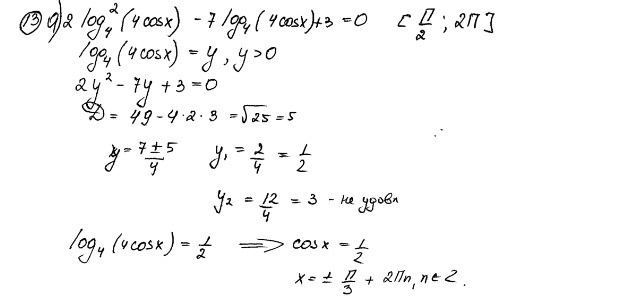 (13) а) 2 log₄²(4cosx) - 7 log₄(4cosx)+3 = 0 [π/2 ; 2π]
log₄(4cosx) = y, y>0
2y² - 7y + 3 = 0
D = 49 - 4·2·3 = √25 = 5
y = (7 ± 5)/4 y₁ = 2/4 = 1/2
y₂ = 12/4 = 3 - не удовл
log₄(4cosx) = 1/2 ⟹ cosx = 1/2
x = ± π/3 + 2πn, n ∈ Z.